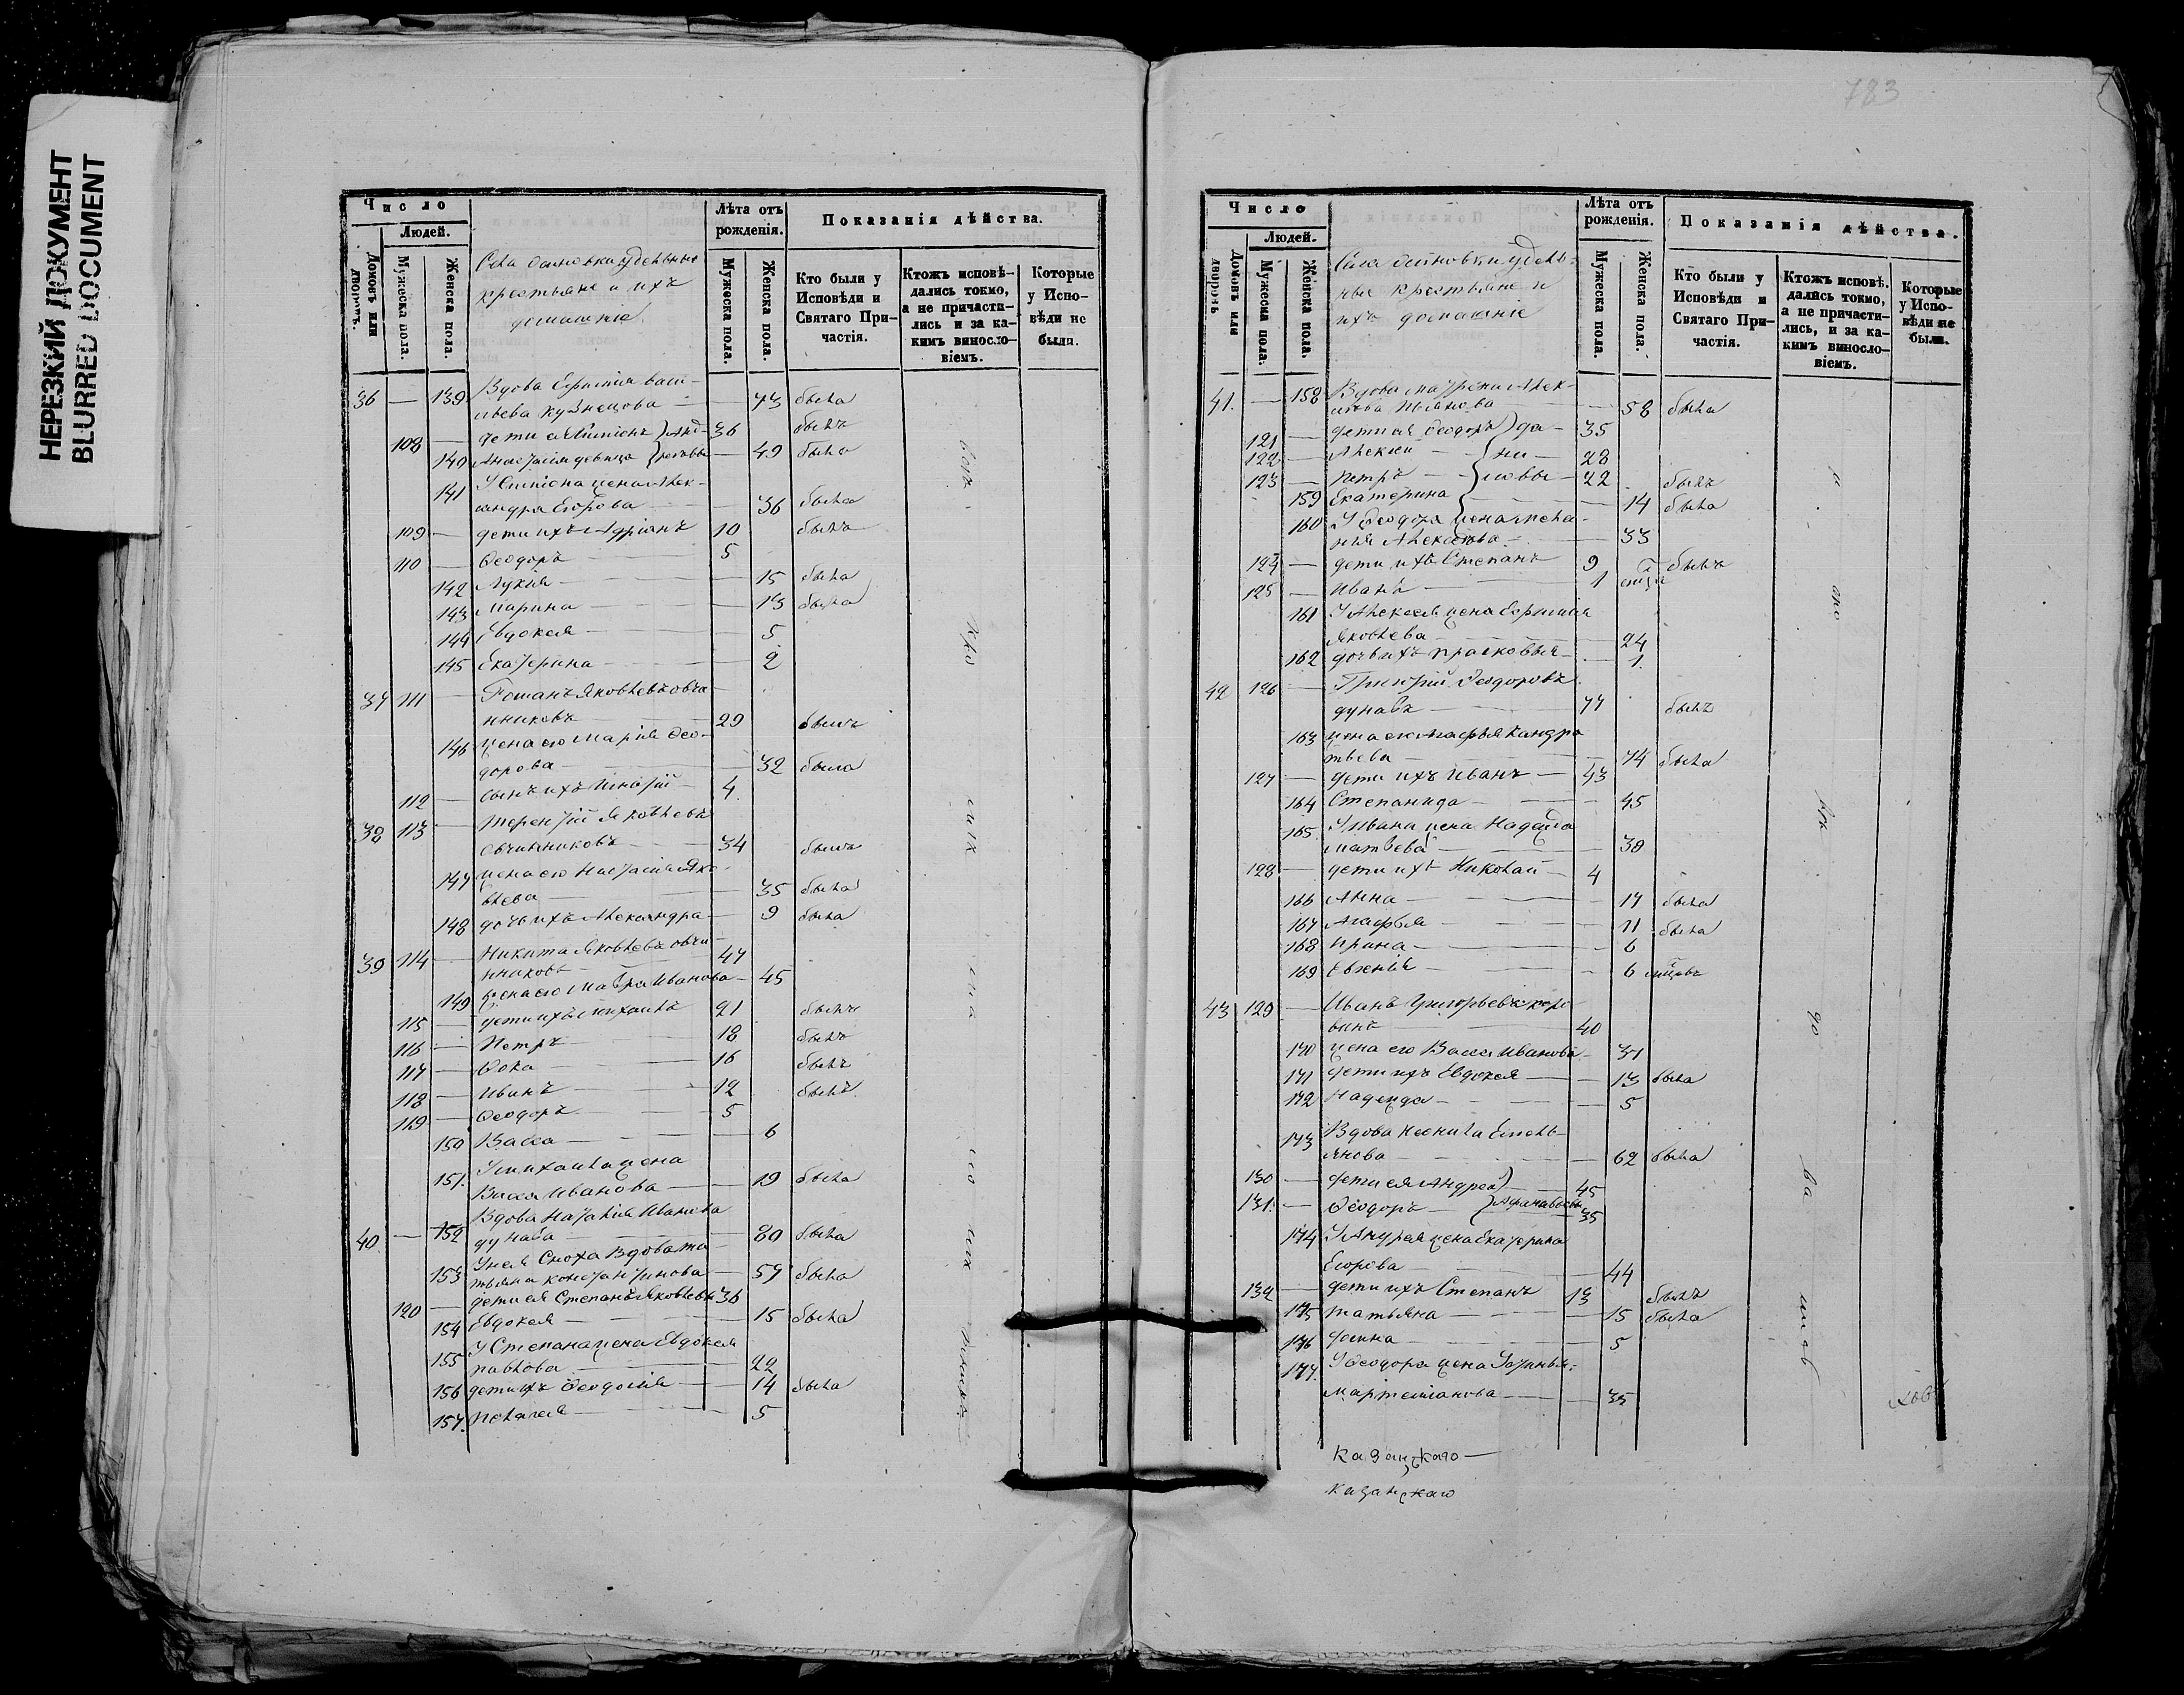 НЕРЕЗКИЙ ДОКУМЕНТ
BLURRED DOCUMENT
Число
Людей.
Домовъ или дворовъ.
Мужеска пола.
Женска пола.
Села удельные
крестьяне и ихъ
домашніе
Лѣта отъ рожденія.
Мужеска пола.
Женска пола.
Показанія дѣйства.
Кто были у Исповѣди и Святаго При-частія.
Ктожъ исповѣ-дались токмо, а не причасти-лись и за ка-кимъ винословіемъ.
Которые у Испо-вѣди не были.
36 — 139 Вдова Евфимія Васи-
льева Кузнецова — 73 была
108 — дети ея 36 былъ
140 Анастасія девица — 49 была
141 жена Алек-
сандра Егорова — 36 была
109 — дети ихъ Адріанъ 10 былъ
110 — Феодоръ 5
142 Лукія — 15 была
143 Марина — 13 была
144 Евдокея — 5
145 Екатерина — 2
37 111 — Романъ Яковлевъ Овчи-
нниковъ — 29 былъ
146 жена его Марія Фео-
дорова — 32 была
112 — сынъ ихъ Игнатій — 4
38 113 — Терентій Яковлевъ
Овчинниковъ — 34 былъ
147 жена его Настасія Яко-
влева — 35 была
148 дочь ихъ Александра — 9 была
39 114 — Никита Яковлевъ Овчи-
нниковъ 47
149 жена его Мавра Иванова — 45
115 — дети ихъ Михаилъ 21 былъ
116 — Петръ 18 былъ
117 — Фока 16 былъ
118 — Иванъ 12 былъ
119 — Феодоръ 5
150 Васса — 6
151 У Михаила жена
Васса Иванова — 19 была
40 — 152 Вдова Наталія Иванова
Дунаева 80 была
153 У нея сноха вдова Та-
тьяна Константинова — 57 была
120 — дети ея Степанъ Яковлевъ 36
154 Евдокея — 15 была
155 У Степана жена Евдокея
Павлова — 22
156 дети ихъ Феодосія — 14 была
157 Пелагея — 5
783
Число
Людей.
Домовъ или дворовъ
Мужеска пола.
Женска пола.
Села удель-
ные крестьяне и
ихъ домашніе
Лѣта отъ рожденія.
Мужеска пола.
Женска пола.
Показанія дѣйства.
Кто были у Исповѣди и Святаго При-частія.
Ктожъ исповѣ-дались токмо, а не причасти-лись, и за ка-кимъ винословіемъ.
Которые у Испо-вѣди не были.
41. — 158 Вдова Матрена Алек-
— 58 была
121 — дети ея Феодоръ 35
122 — Алексей 28
123 — Петръ 22 былъ
159 Екатерина — 14 была
160 У Феодора жена Мела-
нія — 33
124 — дети ихъ Степанъ 9 былъ
125 — Иванъ 1
161 У Алексея жена Евфимія
Яковлева — 24
162 дочь ихъ Прасковья — 1.
42 126 — Григорій Феодоровъ
77 былъ
163 жена его Агафья Кандра
тьева — 74 была
127 — дети ихъ Иванъ — 43
164 Степанида — 45
165 У Ивана жена Надежда
Матвева — 38
128 — дети ихъ Николай — 4
166 Анна — 17 была
167 Агафья — 11 была
168 Ирина — 6
169 Евгенія — 6
43 129 — Иванъ Григорьевъ
40
170 жена его Васса Иванова — 37
171 дети ихъ Евдокея — 13 была
172 Надежда — 5
173 Вдова Емель-
янова — 62 была
130 — дети ея Андрей 45
131. — Феодоръ 35
174 У Андрея жена Екатерина
Егорова — 44
132 — дети ихъ Степанъ 13 былъ
175 Татьяна — 15 была
176 Фаина — 5
177 У Феодора жена
Мартемianова — 35
Казанскаго —
Казанскаго